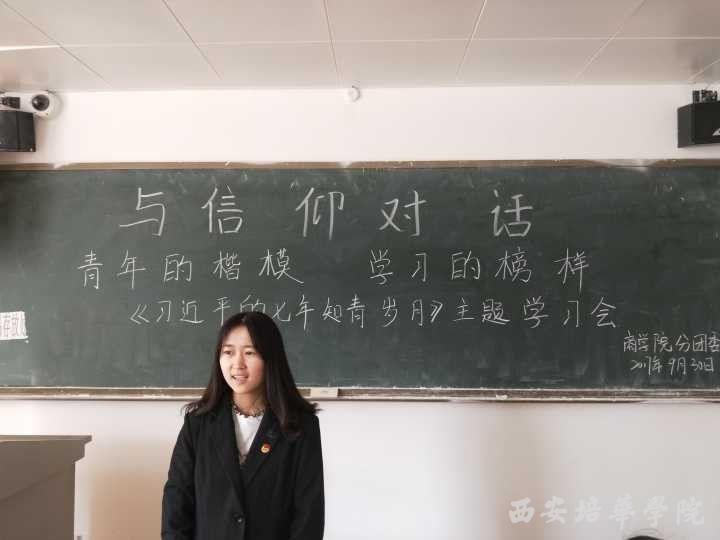 与信仰对话
青年的楷模 学习的榜样
《习近平的七年知青岁月》主题学习会
商学院分团委
2017年9月30日
西安培華学院